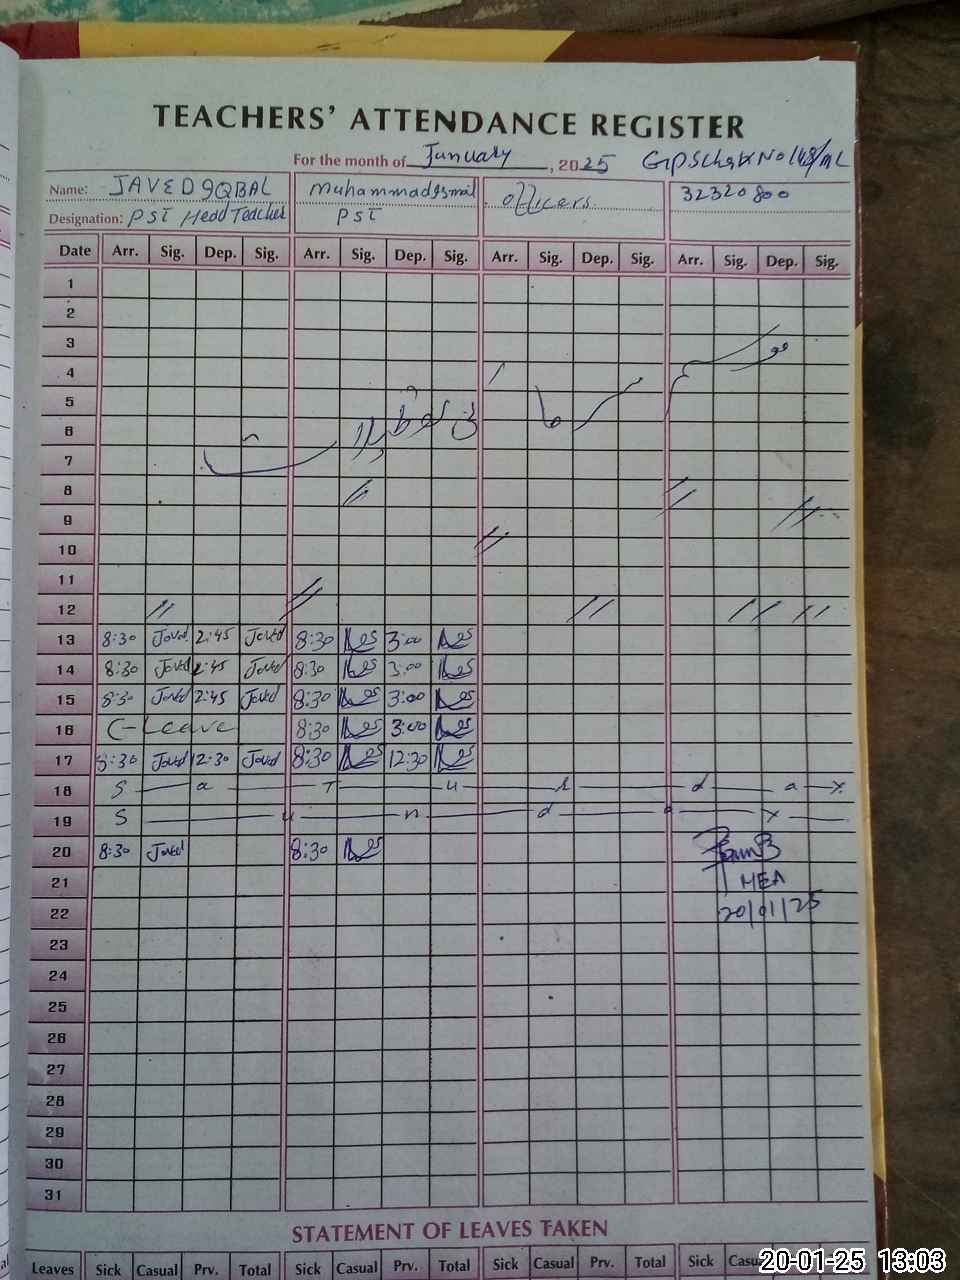 TEACHERS' ATTENDANCE REGISTER
For the month of January, 2025 GPS Chak No 148/ML
Name: JAVED IQBAL Muhammad Ismail officers 32320800
Designation: PST Head Teacher PST
Date Arr. Sig. Dep. Sig. Arr. Sig. Dep. Sig. Arr. Sig. Dep. Sig. Arr. Sig. Dep. Sig.
1
2
3
4
5
6
7
8
9
10
11
12
13 8:30 Javed 2:45 Javed 8:30 3:00
14 8:30 Javed 2:45 Javed 8:30 3:00
15 8:30 Javed 2:45 Javed 8:30 3:00
16 C-Leave 8:30 3:00
17 8:30 Javed 12:30 Javed 8:30 12:30
18 S a T u r d a y
19 S u n d a y
20 8:30 Javed 8:30
21 MEA
22 20/01/25
23
24
25
26
27
28
29
30
31
STATEMENT OF LEAVES TAKEN
Leaves Sick Casual Prv. Total Sick Casual Prv. Total Sick Casual Prv. Total Sick
20-01-25 13:03